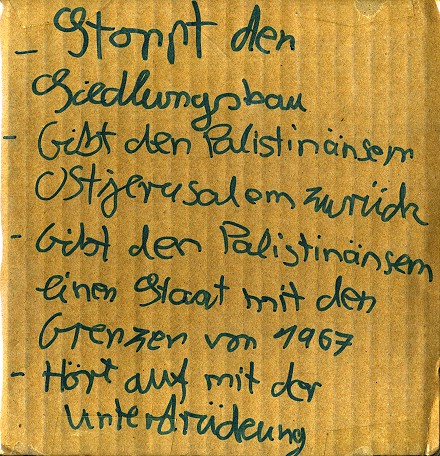 - Stoppt den
Siedlungsbau
- Gibt den Palistinänsern
Ostjerusalem zurück
- Gibt den Palistinänsern
einen Staat mit den
Grenzen von 1967
- Hört auf mit der
Unterdrückung